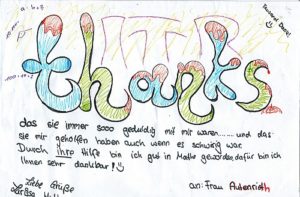 a·b=?
ITR
thanks
das sie immer sooo geduldig mit mir waren......und das
sie mir geholfen haben auch wenn es schwirig war.
Durch ihre Hilfe bin ich gut in Mathe geworden, dafür bin ich
Ihnen sehr dankbar!
Liebe Grüße
Larissa
an: Frau Autenrieth